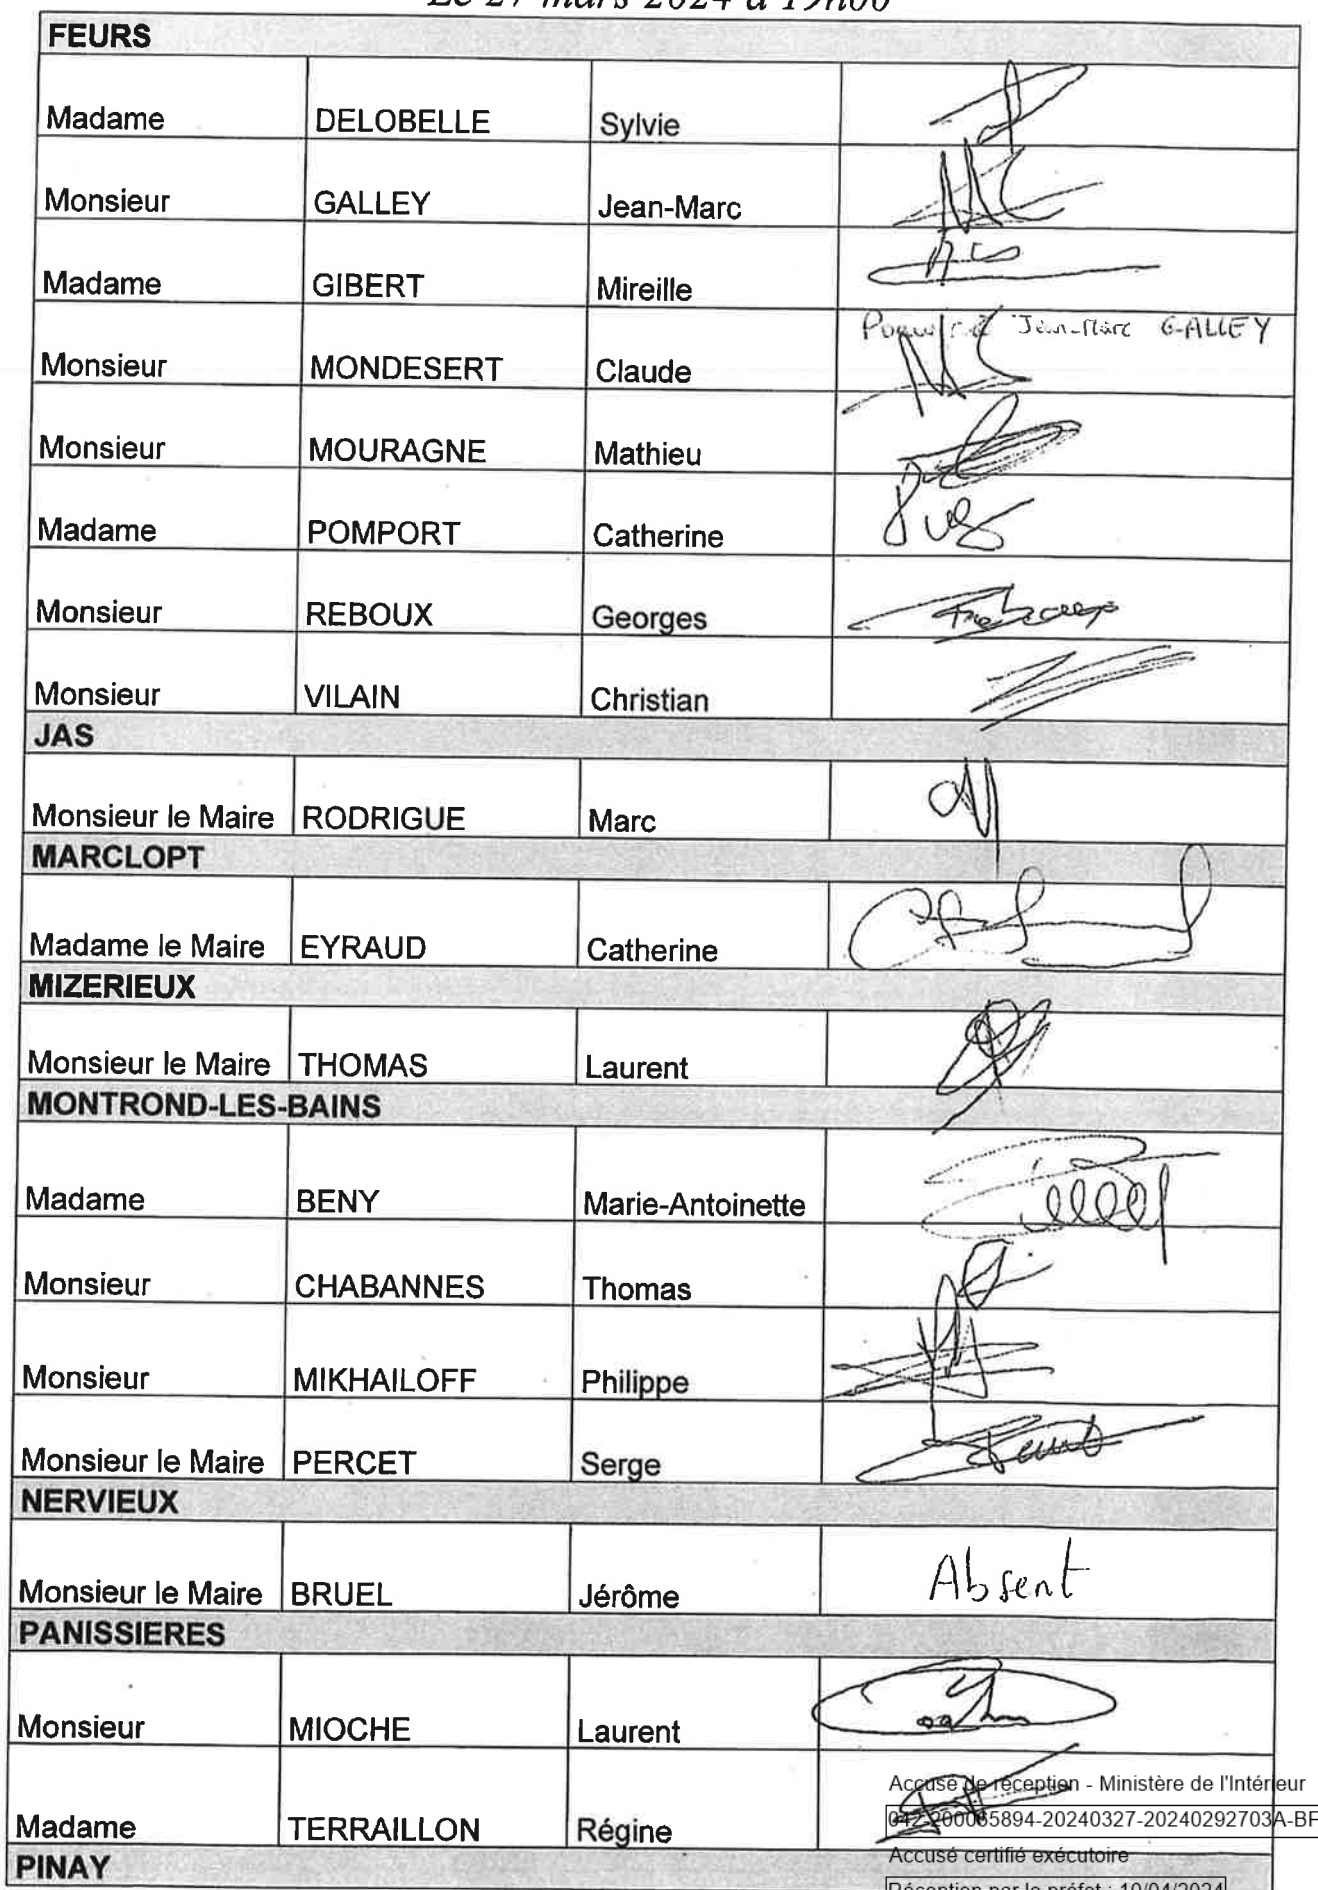 Le 27 mars 2024 à 19h00
FEURS
Madame DELOBELLE Sylvie
Monsieur GALLEY Jean-Marc
Madame GIBERT Mireille
Jean-Marc GALLEY
Monsieur MONDESERT Claude
Monsieur MOURAGNE Mathieu
Madame POMPORT Catherine
Monsieur REBOUX Georges
Monsieur VILAIN Christian
JAS
Monsieur le Maire RODRIGUE Marc
MARCLOPT
Madame le Maire EYRAUD Catherine
MIZERIEUX
Monsieur le Maire THOMAS Laurent
MONTROND-LES-BAINS
Madame BENY Marie-Antoinette
Monsieur CHABANNES Thomas
Monsieur MIKHAILOFF Philippe
Monsieur le Maire PERCET Serge
NERVIEUX
Monsieur le Maire BRUEL Jérôme Absent
PANISSIERES
Monsieur MIOCHE Laurent
Accusé de réception - Ministère de l'Intérieur
042-200065894-20240327-20240292703A-BF
Madame TERRAILLON Régine
Accusé certifié exécutoire
PINAY
Réception par le préfet : 10/04/2024